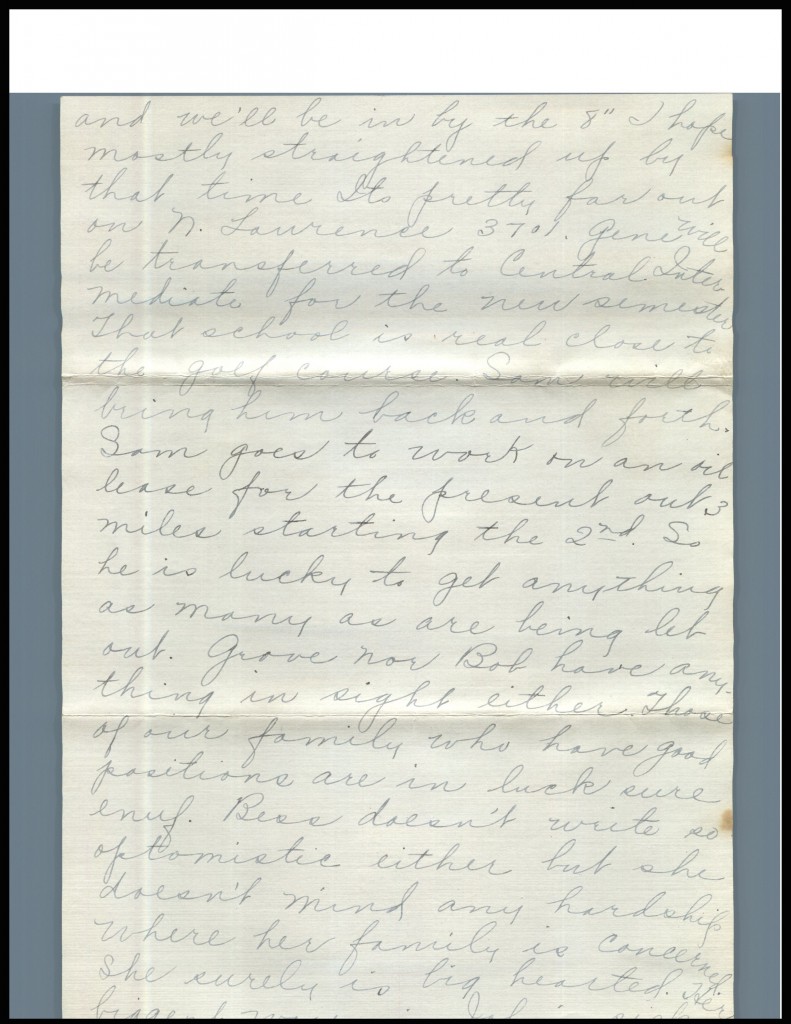 and we'll be in by the 8" I hope
mostly straightened up by
that time Its pretty far out
on N. Lawrence 3701. Gene will
be transferred to Central Inter-
mediate for the new semester
That school is real close to
the golf course. Sam will
bring him back and forth.
Sam goes to work on an oil
lease for the present out 3
miles starting the 2nd. So
he is lucky to get anything
as many as are being let
out. Grove nor Bob have any-
thing in sight either. Those
of our family who have good
positions are in luck sure
enuf. Bess doesn't write so
optomistic either but she
doesn't mind any hardship
where her family is concerned.
She surely is big hearted. Her
biggest